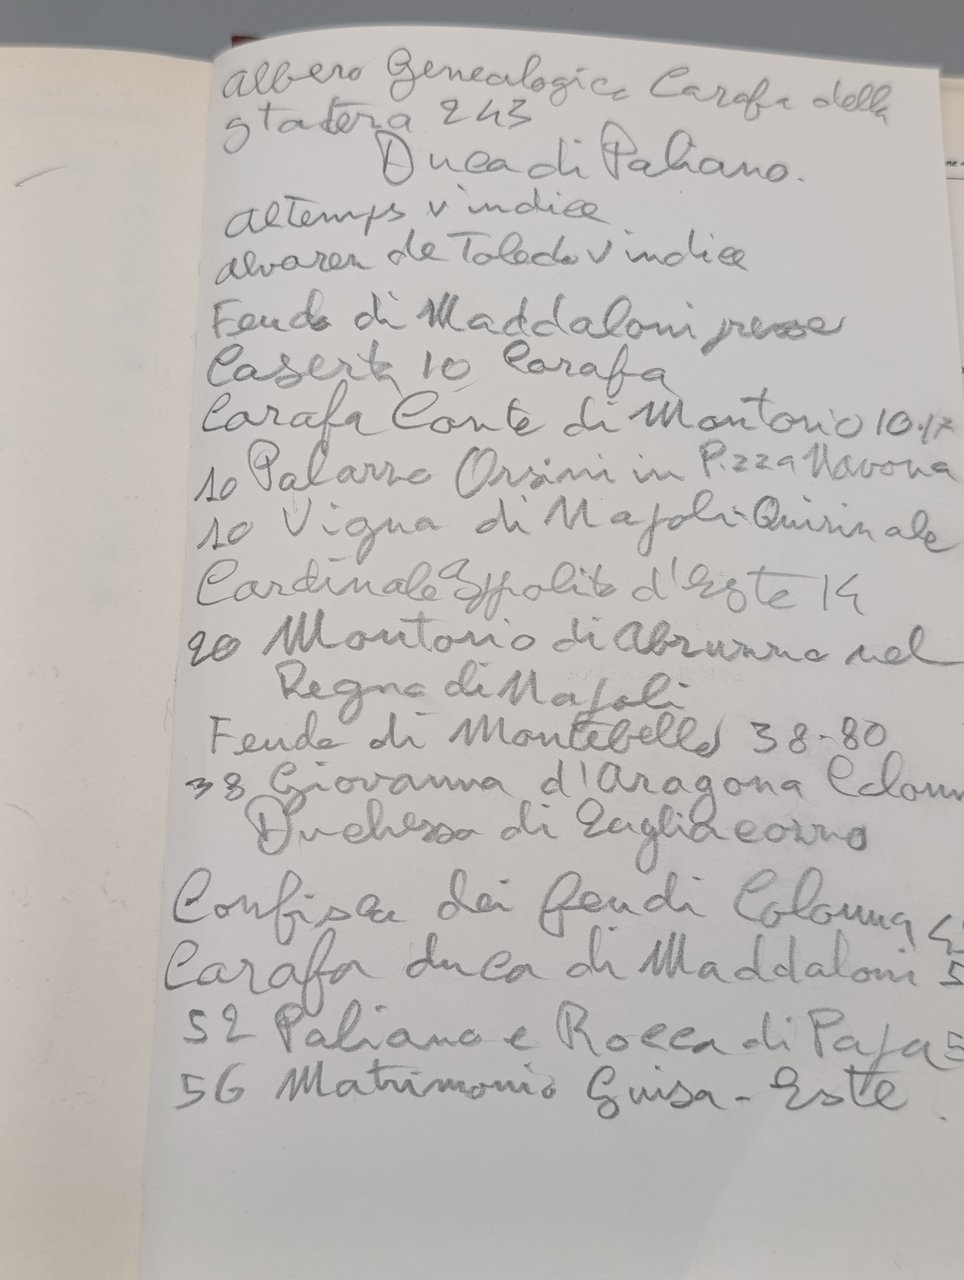 albero Genealogico Carafa della
stadera 243
Duca di Paliano.
altemps v indice
alvarez de Toledo v indice
Feudo di Maddaloni presso
Caserta 10 Carafa
Carafa Conte di Montorio 10.17
10 Palazzo Orsini in P.zza Navona
10 Vigna di Napoli-Quirinale
Cardinale Ippolito d'Este 14
20 Montorio di abruzzo nel
Regno di Napoli
Feudo di Montebello 38-80
38 Giovanna d'aragona Colonn
Duchessa di Tagliacozzo
Confisca dei feudi Colonna
Carafa duca di Maddaloni 5
52 Paliano e Rocca di Papa 5
56 Matrimonio Guisa-Este.